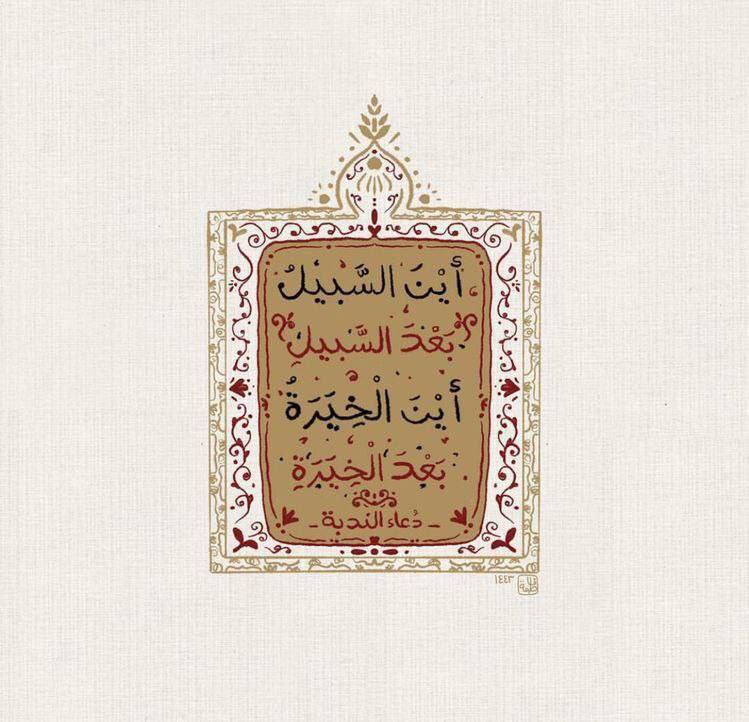 أَيْنَ السَّبِيلُ
بَعْدَ السَّبِيلِ
أَيْنَ الْخِيَرَةُ
بَعْدَ الْخِيَرَةِ
- دُعاء الندبة -
١٤٤٣